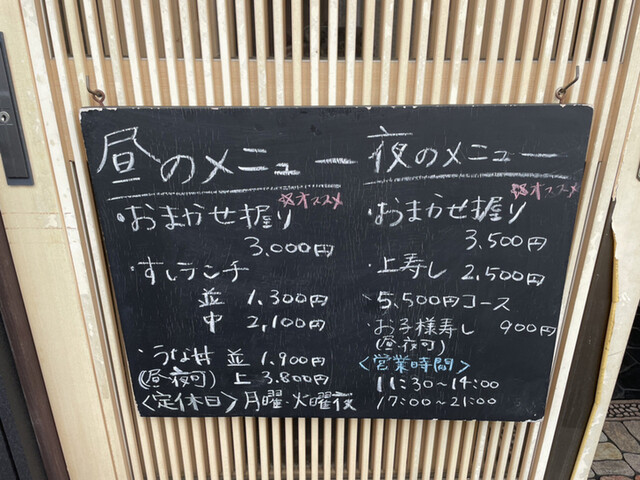 昼のメニュー
☆オススメ
・おまかせ握り
3.000円
・すしランチ
並 1.300円
中 2,100円
・うな丼 並 1.900円
(昼・夜可) 上 3.800円
〈定休日〉月曜・火曜夜
夜のメニュー
☆オススメ
・おまかせ握り
3.500円
・上寿し 2,500円
・5,500円コース
・お子様寿し 900円
(昼、夜可)
〈営業時間〉
11:30～14:00
17:00～21:00